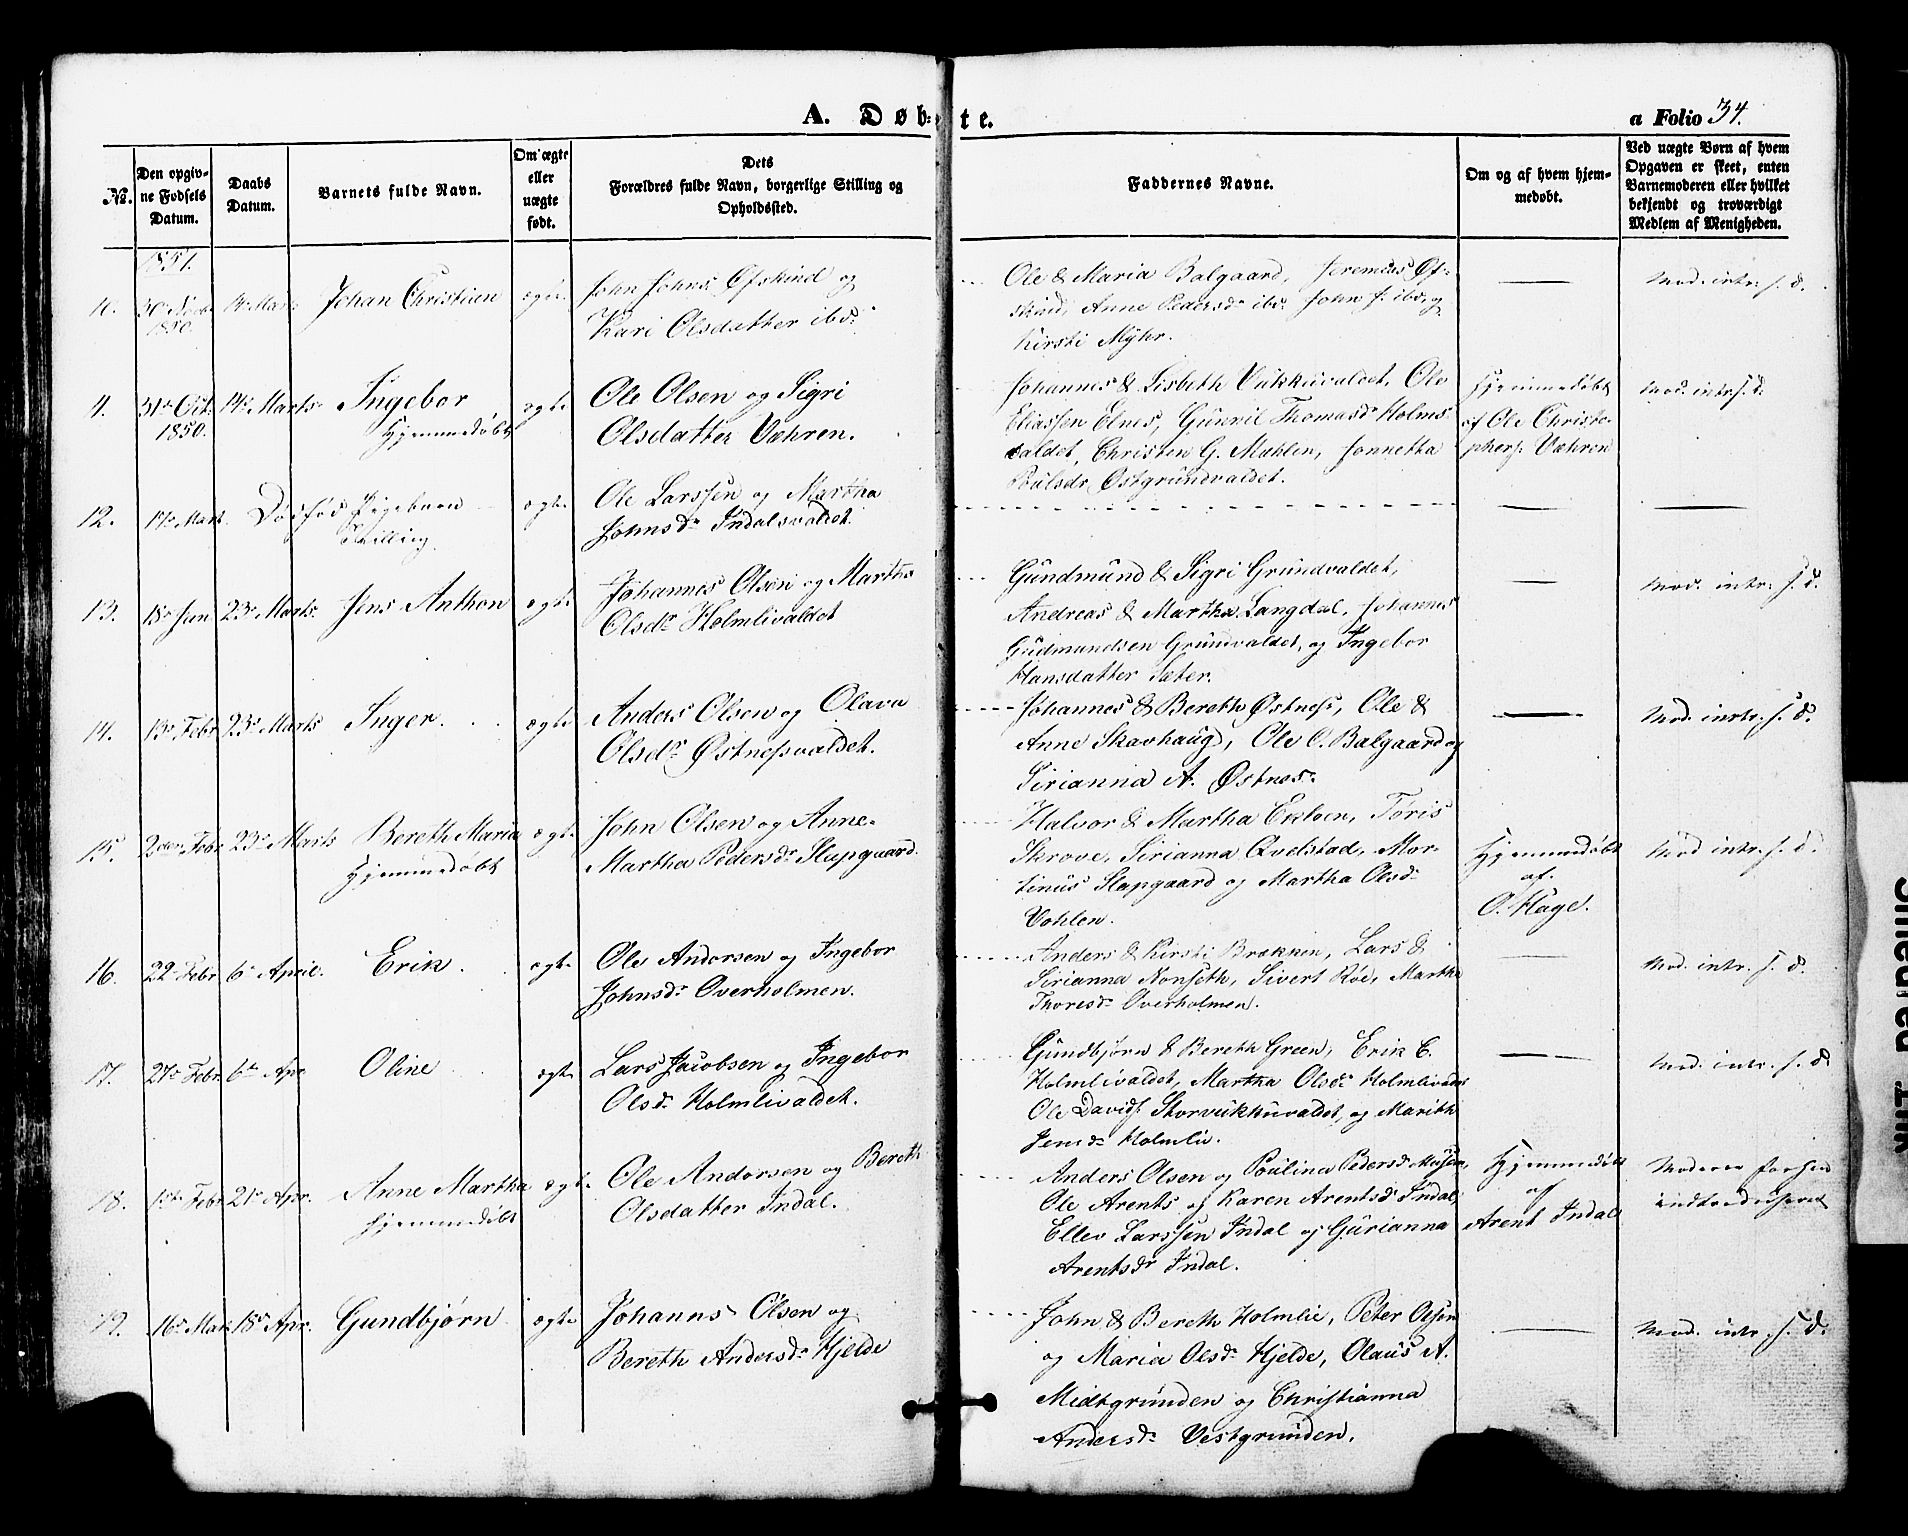 A. Døbte.
a Folio 34.
№.
Den opgivne Fødsels Datum.
Daabs Datum.
Barnets fulde Navn.
Om ægte eller uægte født.
Dets Forældres fulde Navn, borgerlige Stilling og Opholdssted.
Faddernes Navne.
Om og af hvem hjemmedøbt.
Ved uægte Børn af hvem Opgaven er skeet, enten Barnemoderen eller hvilket bekjendt og troværdigt Medlem af Menigheden.
1851.
Johan Christian
John Johns. Øfskind og
Kari Olsdatter ibd.
Ole & Maria Balgaard, Jeremias Øf-
skind, Anne Pedersdr ibd. John J. ibd. og
Kirsti Myhr.
Mod. intr. s. d.
4.
31te Oct. 1850.
14de Marts
Ingebor
Hjemmedøbt
ægte
Ole Olsen og Sigri
Olsdatter Væhren.
Johannes & Lisbeth Vukkuvaldet, Ole
Eliassen Elnes, Gunvil Thomasdr Holms-
valdet, Christen G. Mæhlen, Jonnetta
Poulsdr Østgrundvaldet.
Hjemmedøbt
af Ole Christo-
phers. Væhren
Mod. intr. s. d.
12.
17de Mart.
Dødfød Pigebarn
Tvilling
ægte
Ole Larssen og Martha
Johnsdr Indalsvaldet.
13.
18de Jan
23de Marts.
Jens Anthon
ægte
Johannes Olsen og Martha
Olsdr Holmlivaldet
Gundmund & Sigri Grundvaldet,
Andreas & Martha Langdal, Johannes
Gudmundsen Grundvaldet, og Ingebor
Hansdatter Sæter.
Mod. intr. s. d.
14.
13de Febr
23de Marts
Inger.
ægte
Anders Olsen og Olava
Olsdr Østnessvaldet.
Johannes & Bereth Østness, Ole &
Anne Skavhaug, Ole O. Balgaard og
Sirianna A. Østnes.
Mod. intr. s. d.
15.
2den Febr
23de Marts
Bereth Maria
Hjemmedøbt
ægte
John Olsen og Anne-
Martha Pedersdr Slapgaard.
Halvor & Martha Ekloen, Tøris
Skrove, Sirianna Qvelstad, Mar-
tinus Slapgaard og Martha Olsdr
Vohlen.
Hjemmedøbt
af
O. Hage.
Mod intr. s. d.
16.
22de Febr
6te April.
Erik.
ægte
Ole Andersen og Ingebor
Johnsdr Overholmen.
Anders & Kirsti Brækken, Lars &
Sirianna Nonseth, Sivert Röe, Martha
Thoresdr Overholmen.
Mod. intr. s. d.
17.
27de Febr.
6te Apr
Oline
ægte
Lars Jacobsen og Ingebor
Olsdr Holmlivaldet.
Gundbjørn & Bereth Green, Erik E.
Holmlivaldet, Martha Olsdr Holmlivadet
Ole Davids. Storvukkuvaldet, og Marith
Jensdr Holmlie.
Mod. intr. s. d.
18.
1ste Febr
21de Apr.
Anne Martha
Hjemmedøbt
ægte
Ole Andersen og Bereth
Olsdatter Indal.
Anders Olsen og Poulina Pedersdr
Ole Arents. og Karen Arentsdr Indal,
Ellev Larssen Indal og Gurianna
Arentsdr Indal.
Hjemmedøbt
af
Arent Indal
19.
16de Mar.
18de Apr.
Gundbjørn
ægte
Johanns Olsen og
Bereth Andersdr Hjelde
John & Bereth Holmlie, Peter Olsen
og Maria Olsdr Hjelde, Olaus A.
Midtgrunden og Christianna
Andersdr Vestgrunden.
Mod. intr. s. d.